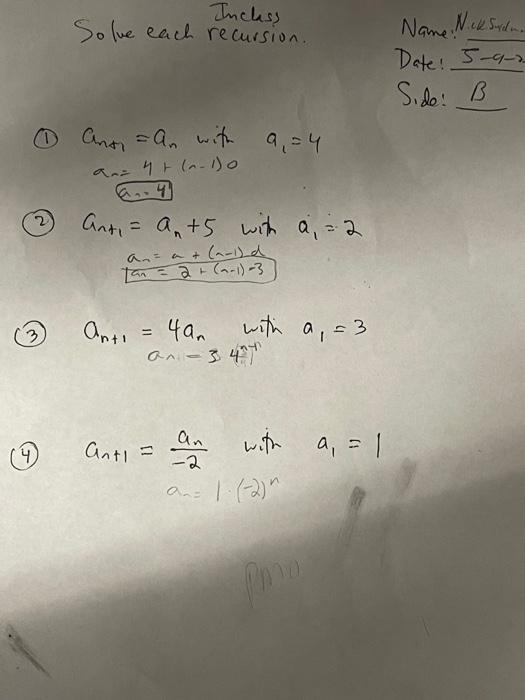 Inclass
Solve each recursion.
Name: Nick
Date: 5-9-2
Side: B
① aₙ₊₁ = aₙ with a₁ = 4
aₙ = 4 + (n-1)0
aₙ = 4
② aₙ₊₁ = aₙ + 5 with a₁ = 2
aₙ = a + (n-1)d
aₙ = 2 + (n-1)-3
③ aₙ₊₁ = 4aₙ with a₁ = 3
aₙ = 3 4ⁿ⁻¹
④ aₙ₊₁ = aₙ/-2 with a₁ = 1
aₙ = 1·(-2)ⁿ